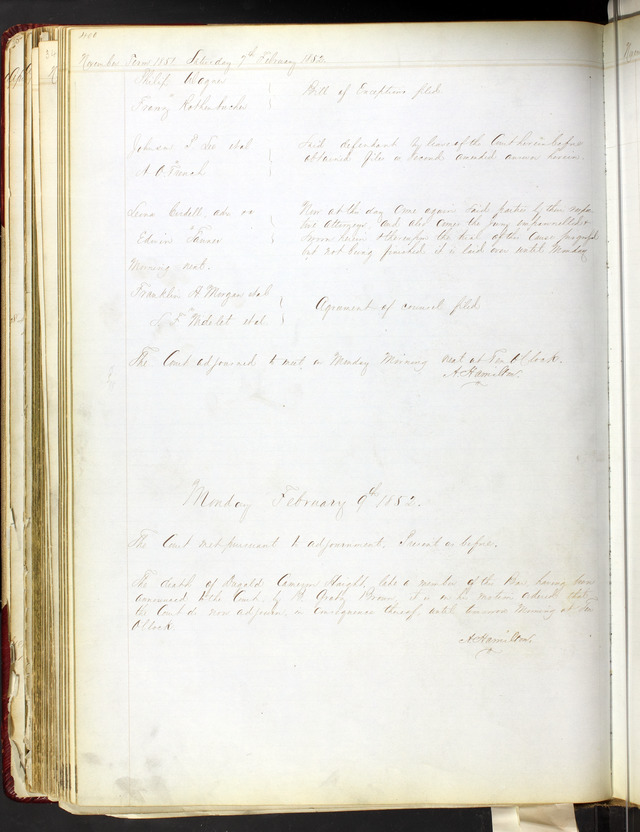 400
November Term 1851. Saturday 7th February 1852.
Philip Wagner
vs
Franz Rothenbucher
Bill of Exceptions filed
Johnson P. Lee et al
vs
A. B.
Said defendant by leave of the Court hereinbefore
obtained files a Second amended answer herein.
vs
Edwin Tanner
Now at this day come again said parties by their
attorneys and also comes the Jury
sworn herein & thereupon the trial of this cause
but not being finished it is laid over until Monday
Morning next.
Franklin A. Morgan et al
vs
et al
Agreement of counsel filed
The Court adjourned to meet on Monday Morning next at Ten O'Clock.
A. Hamilton.
Monday February 9th 1852.
The Court met pursuant to adjournment. Present as before.
The death of Cameron Haight, late a member of the Bar having been
announced to the Court by B. Gratz Brown, it is on his motion ordered that
the Court do now adjourn, in consequence thereof, until tomorrow Morning at Ten
O'Clock
A. Hamilton.